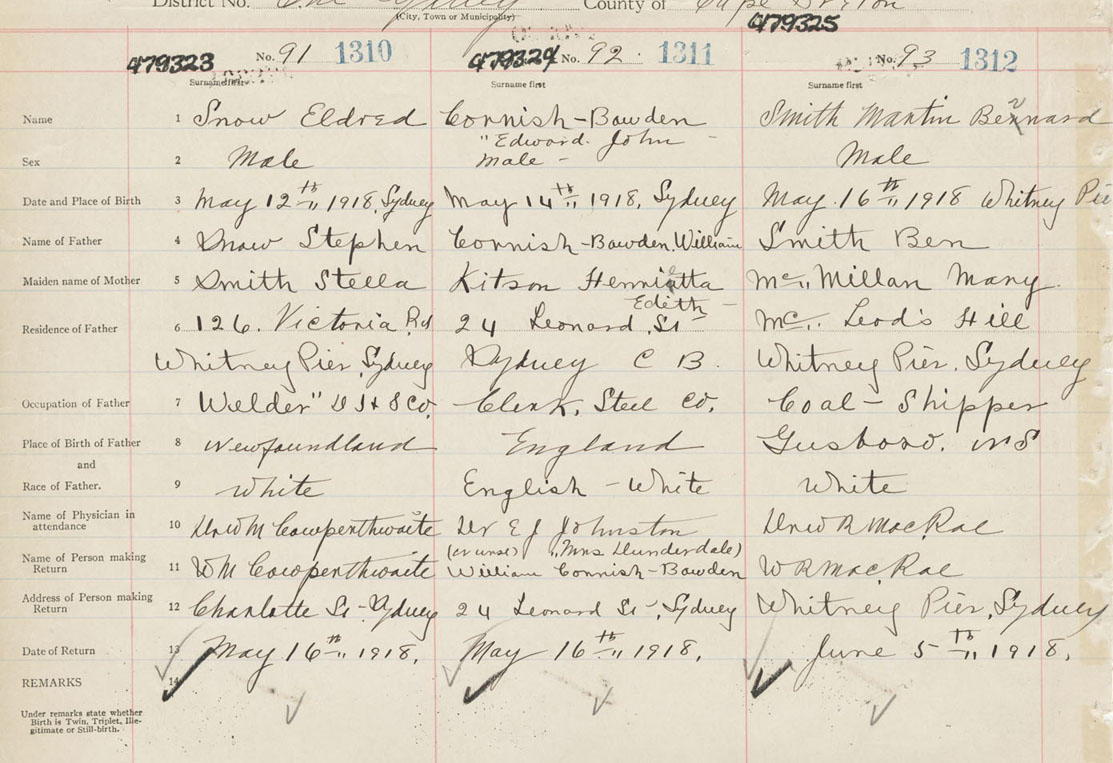 District No. One Sydney County of Cape Breton
(City, Town or Municipality)
479325
479323 No. 91 1310 479324 No. 92 1311 No. 93 1312
Surname first Surname first Surname first
Name 1 Snow Eldred Cornish-Bowden Smith Martin Bernard
"Edward John -
Sex 2 Male Male - Male
Date and Place of Birth 3 May 12th 1918, Sydney May 14th 1918, Sydney May 16th 1918 Whitney Pie
Name of Father 4 Snow Stephen Cornish-Bowden, William Smith Ben
Maiden name of Mother 5 Smith Stella Kitson Henrietta Mc Millan Mary
Edith -
Residence of Father 6 126. Victoria Rd 24 Leonard St Mc Leod's Hill
Whitney Pier, Sydney Sydney C B. Whitney Pier, Sydney
Occupation of Father 7 Welder" D I & S Co. Clerk, Steel Co. Coal-Shipper
Place of Birth of Father 8 Newfoundland England Gusboro. NS
and
Race of Father. 9 White English - White White
Name of Physician in
attendance 10 Dr W M Cowperthwaite Dr E J Johnston Dr W R MacRae
(or nurse) "Mrs Dunderdale)
Name of Person making
Return 11 W M Cowperthwaite William Cornish-Bowden W R MacRae
Address of Person making
Return 12 Charlotte St - Sydney 24 Leonard St, Sydney Whitney Pier, Sydney
Date of Return 13 May 16th 1918. May 16th 1918. June 5th 1918.
REMARKS 14
Under remarks state whether
Birth is Twin, Triplet, Ille-
gitimate or Still-birth.